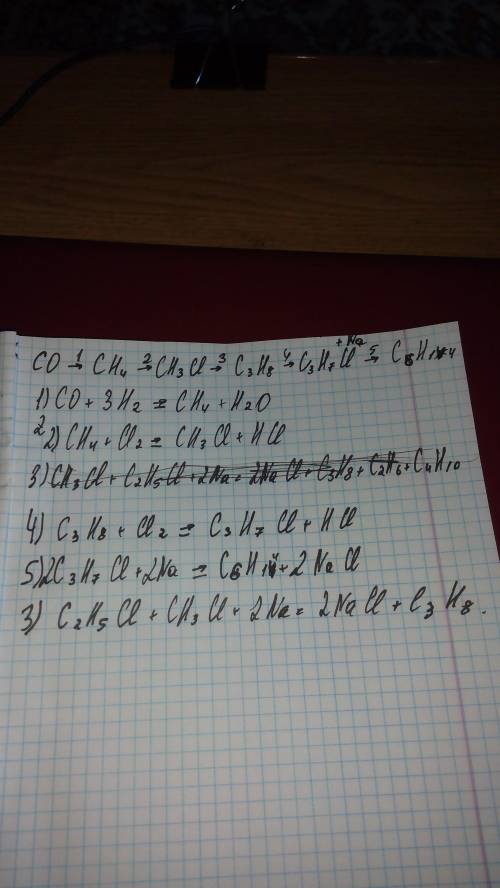 CO →1 CH4 →2 CH3Cl →3 C3H8 →4 C3H7Cl +Na →5 C6H14
1) CO + 3H2 = CH4 + H2O
2) CH4 + Cl2 = CH3Cl + HCl
3) CH3Cl + C2H5Cl + 2Na = 2NaCl + C3H8 + C2H6 + C4H10
4) C3H8 + Cl2 = C3H7Cl + HCl
5) 2C3H7Cl + 2Na = C6H14 + 2NaCl
3) C2H5Cl + CH3Cl + 2Na = 2NaCl + C3H8.